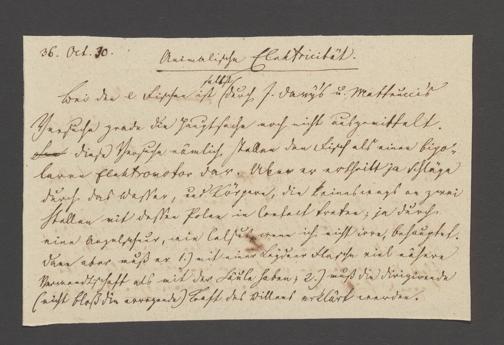 36. Oct. 30.
Animalische Elektricität.
selbst
Bei den e Fischen ist durch J. Davy's u. Matteucci's
Versuche grade die Hauptsache noch nicht ausgemittelt.
diese Versuche nämlich stellen den Fisch als einen bipo-
laren Elektromotor dar. Aber er ertheilt ja Schläge
durch das Wasser, und Körpern, die keineswegs an zwei
Stellen mit dessen Polen in Contact treten; ja durch
eine Angelschnur, wie wenn ich nicht irre, behauptet.
Dann aber muß er 1.) mit einer Leidner Flasche viel nähere
Verwandtschaft als mit der Säule haben; 2.) muß die dirigirende
(nicht bloß die erregende) Kraft des Willens erklärt werden.